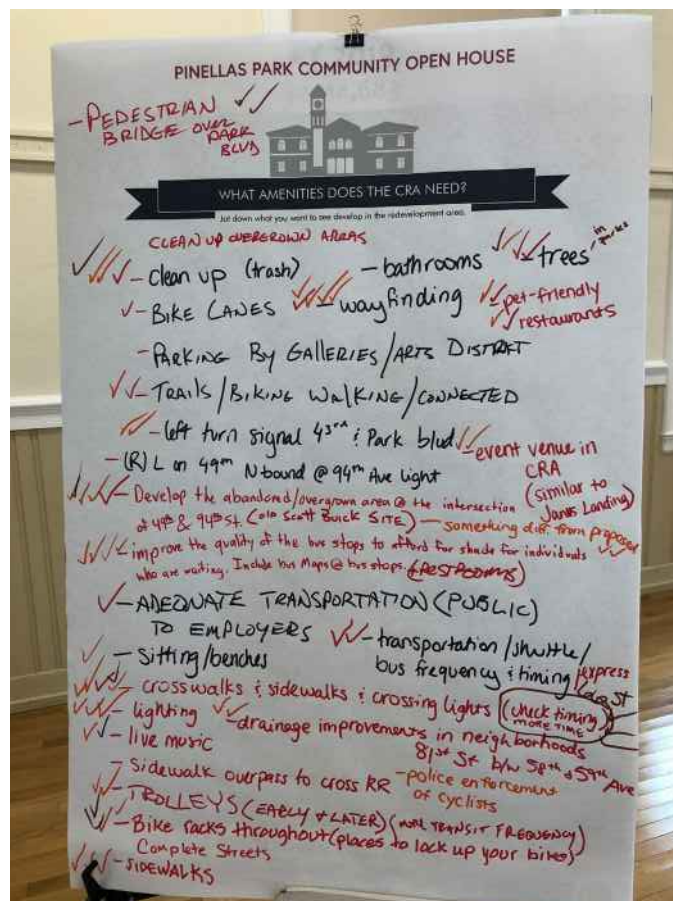 PINELLAS PARK COMMUNITY OPEN HOUSE
- PEDESTRIAN
BRIDGE OVER
PARK
BLVD
WHAT AMENITIES DOES THE CRA NEED?
Jot down what you want to see develop in the redevelopment area.
CLEAN UP OVERGROWN AREAS
- clean up (trash)
- bathrooms
- trees
in parks
- BIKE LANES
- wayfinding
- pet-friendly
restaurants
- PARKING BY GALLERIES/ARTS DISTRICT
- TRAILS/BIKING WALKING/CONNECTED
- left turn signal 43rd & Park blvd
- event venue in
CRA
(similar to
Janus Landing)
- (R) L on 49th N bound @ 94th Ave light
- Develop the abandoned/overgrown area @ the intersection
of 49th & 94th St. (old Scott Buick SITE) - something diff. from proposed
- improve the quality of the bus stops to afford for shade for individuals
who are waiting. Include bus Maps @ bus stops. (RESTROOMS)
- ADEQUATE TRANSPORTATION (PUBLIC)
TO EMPLOYERS
- transportation/shuttle/
bus frequency & timing
express
- Sitting/benches
- crosswalks & sidewalks & crossing lights
(check timing
MORE TIME)
- lighting
- drainage improvements in neighborhoods
81st St b/w 58th & 59th Ave
- live music
- Sidewalk overpass to cross RR
- police enforcement
of cyclists
- TROLLEYS (EARLY & LATER) (MORE TRANSIT FREQUENCY)
- Bike racks throughout (places to lock up your bikes)
Complete Streets
- SIDEWALKS